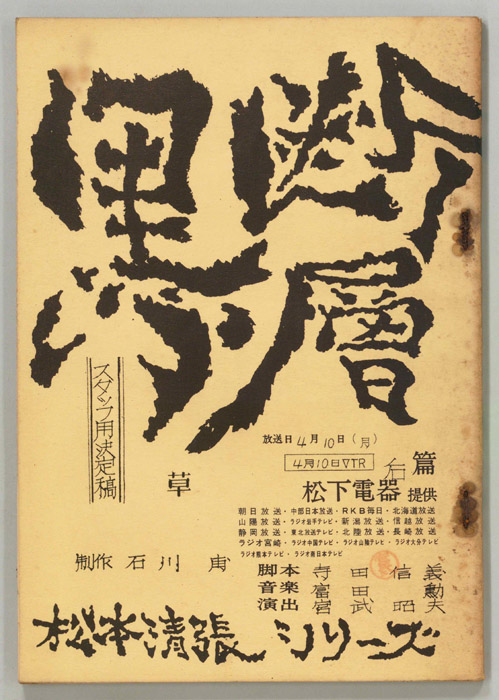 黒い
断層
スタッフ用決定稿
草
放送日 4月10日(月)
4月10日VTR
后篇
松下電器 提供
朝日放送・中部日本放送・RKB毎日・北海道放送
山陽放送・ラジオ岩手テレビ・新潟放送・信越放送
静岡放送・東北放送テレビ・北陸放送・長崎放送
ラジオ宮崎・ラジオ中国テレビ・ラジオ山陰テレビ・ラジオ大分テレビ
ラジオ熊本テレビ・ラジオ南日本テレビ
制作 石川 甫
脚本 寺田信義
音楽 富田勲
演出 宮武昭夫
松本清張シリーズ